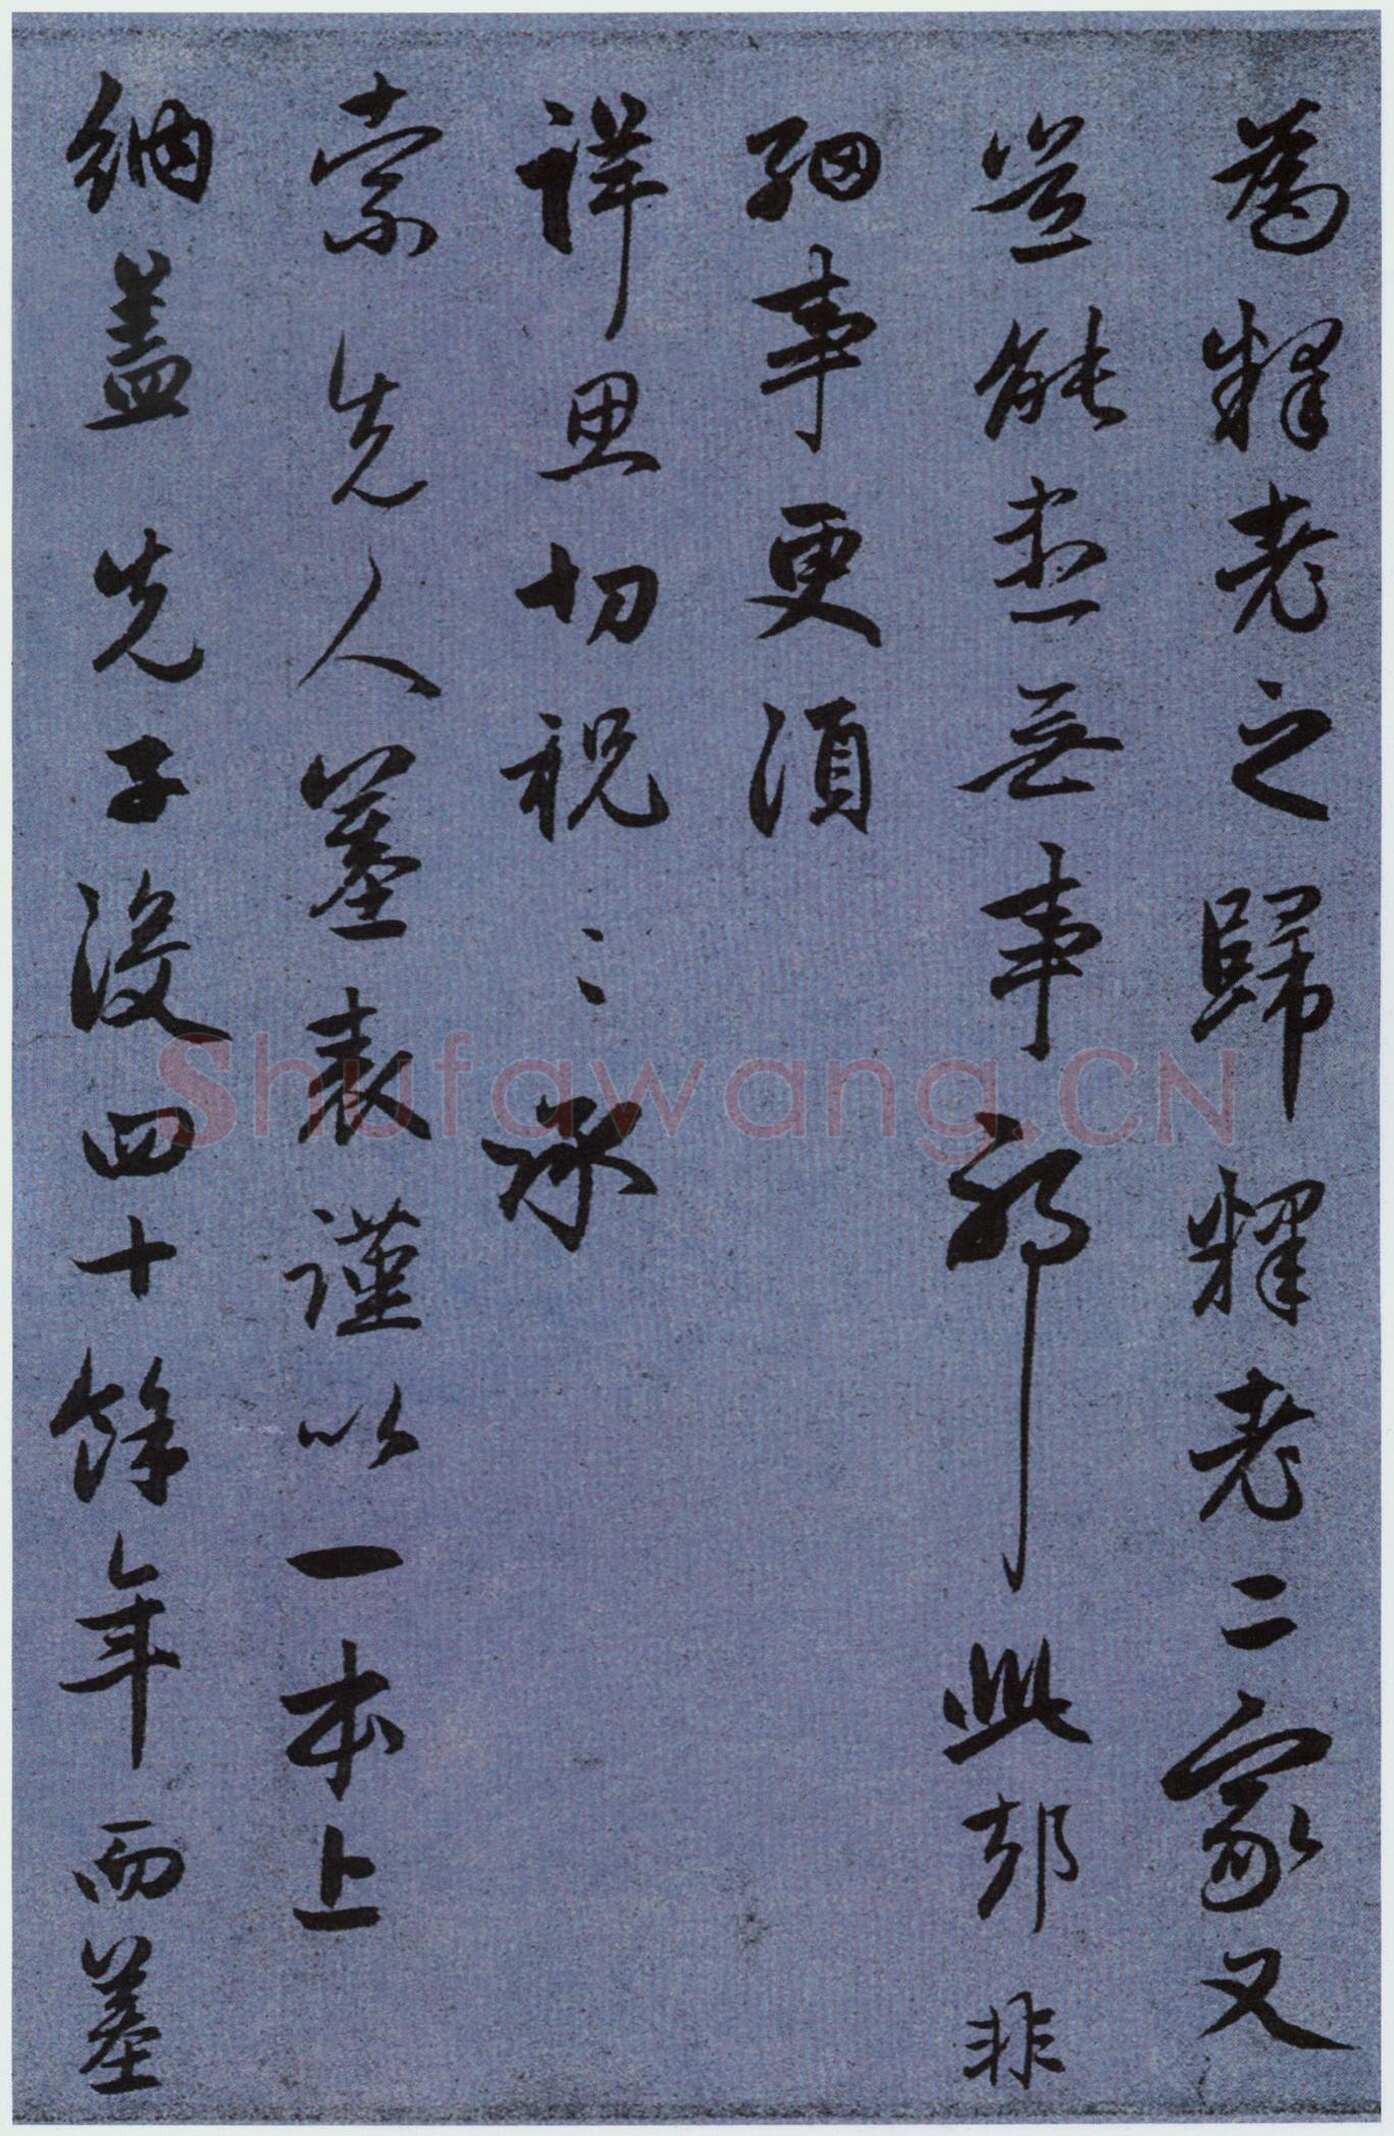 為釋老之歸釋老二家又
豈能盡無事耶此却非
細事更須
詳思切祝〻承
索先人墓表謹以一本上
納蓋先子沒四十餘年而墓
Shufawang.CN